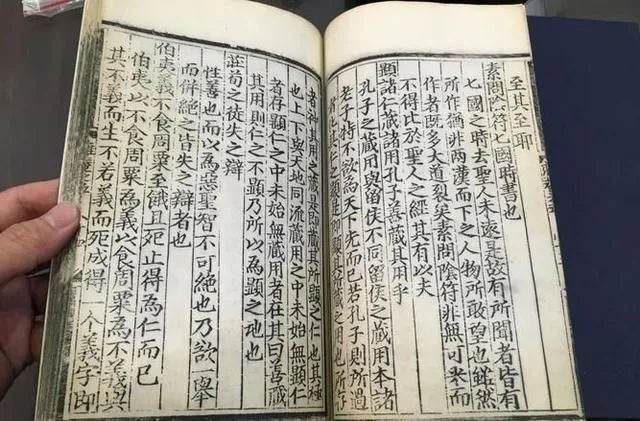 至其至耶
素問陰符七國時書也
七國之時去聖人未遠是故有所聞者皆有
所作猶非兩漢而下之人物所敢望也雖然
作者既多大道裂矣素問陰符非無可采而
不得比於聖人之經其有以夫
顯諸仁藏諸用孔子善藏其用乎
孔子之藏用與留侯不同留侯之藏用本諸
老子特不欲為天下先而已若孔子則所過
之顯是藏之用也所存
者神其用之藏是即藏其所顯之仁也其極
也上下與天地同流藏用之中未始無顯仁
者存顯仁之中未始無藏用者在其曰善藏
其用則仁之不顯乃所以為顯之地也
莊荀之徒失之辯
性善也而以為惡聖智不可絶也乃欲一舉
而併絶之皆失之辯者也
伯夷義不食周粟至餓且死止得為仁而已
伯夷以不食周粟為義以食周粟為不義與
其不義而生不若義而死成得一个義字即